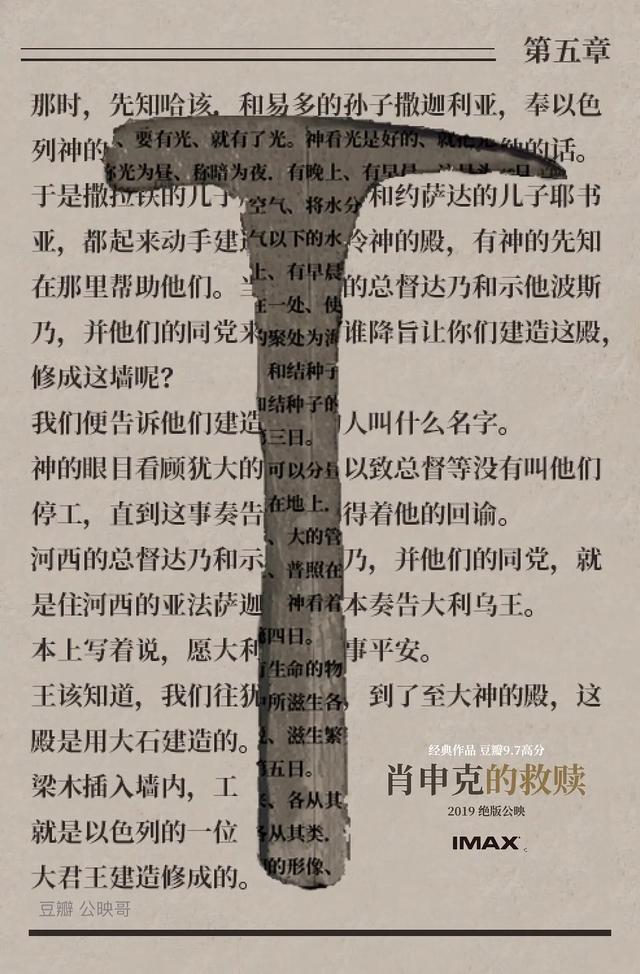 第五章
那时，先知哈该，和易多的孙子撒迦利亚，奉以色
列神的 的话。
于是撒拉铁的儿子 和约萨达的儿子耶书
亚，都起来动手建造 冷神的殿，有神的先知
在那里帮助他们。当 的总督达乃和示他波斯
乃，并他们的同党来 谁降旨让你们建造这殿，
修成这墙呢？
我们便告诉他们建造 人叫什么名字。
神的眼目看顾犹大的 以致总督等没有叫他们
停工，直到这事奏告 得着他的回谕。
河西的总督达乃和示 乃，并他们的同党，就
是住河西的亚法萨迦 本奏告大利乌王。
本上写着说，愿大利 事平安。
王该知道，我们往犹 到了至大神的殿，这
殿是用大石建造的。
梁木插入墙内，工
就是以色列的一位
大君王建造修成的。
、要有光、就有了光。神看光是好的、就
光为昼、称暗为夜．有晚上、有早晨
空气、将水分
气以下的水
上、有早晨
在一处、使
的聚处为海
和结种子
和结种子的
第三日。
可以分昼
在地上．
、大的管
、普照在
神看着
第四日。
有生命的物
所滋生各
、滋生繁
第五日。
、各从其
各从其类．
的形像、
经典作品 豆瓣9.7高分
肖申克的救赎
2019 绝版公映
IMAX
豆瓣 公映哥